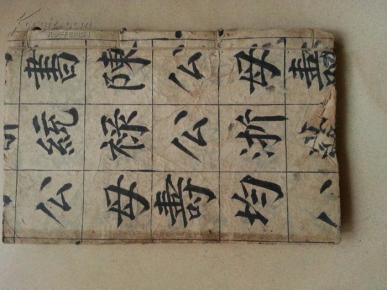 壽
母浙均
公公壽
陳祿母
書統公